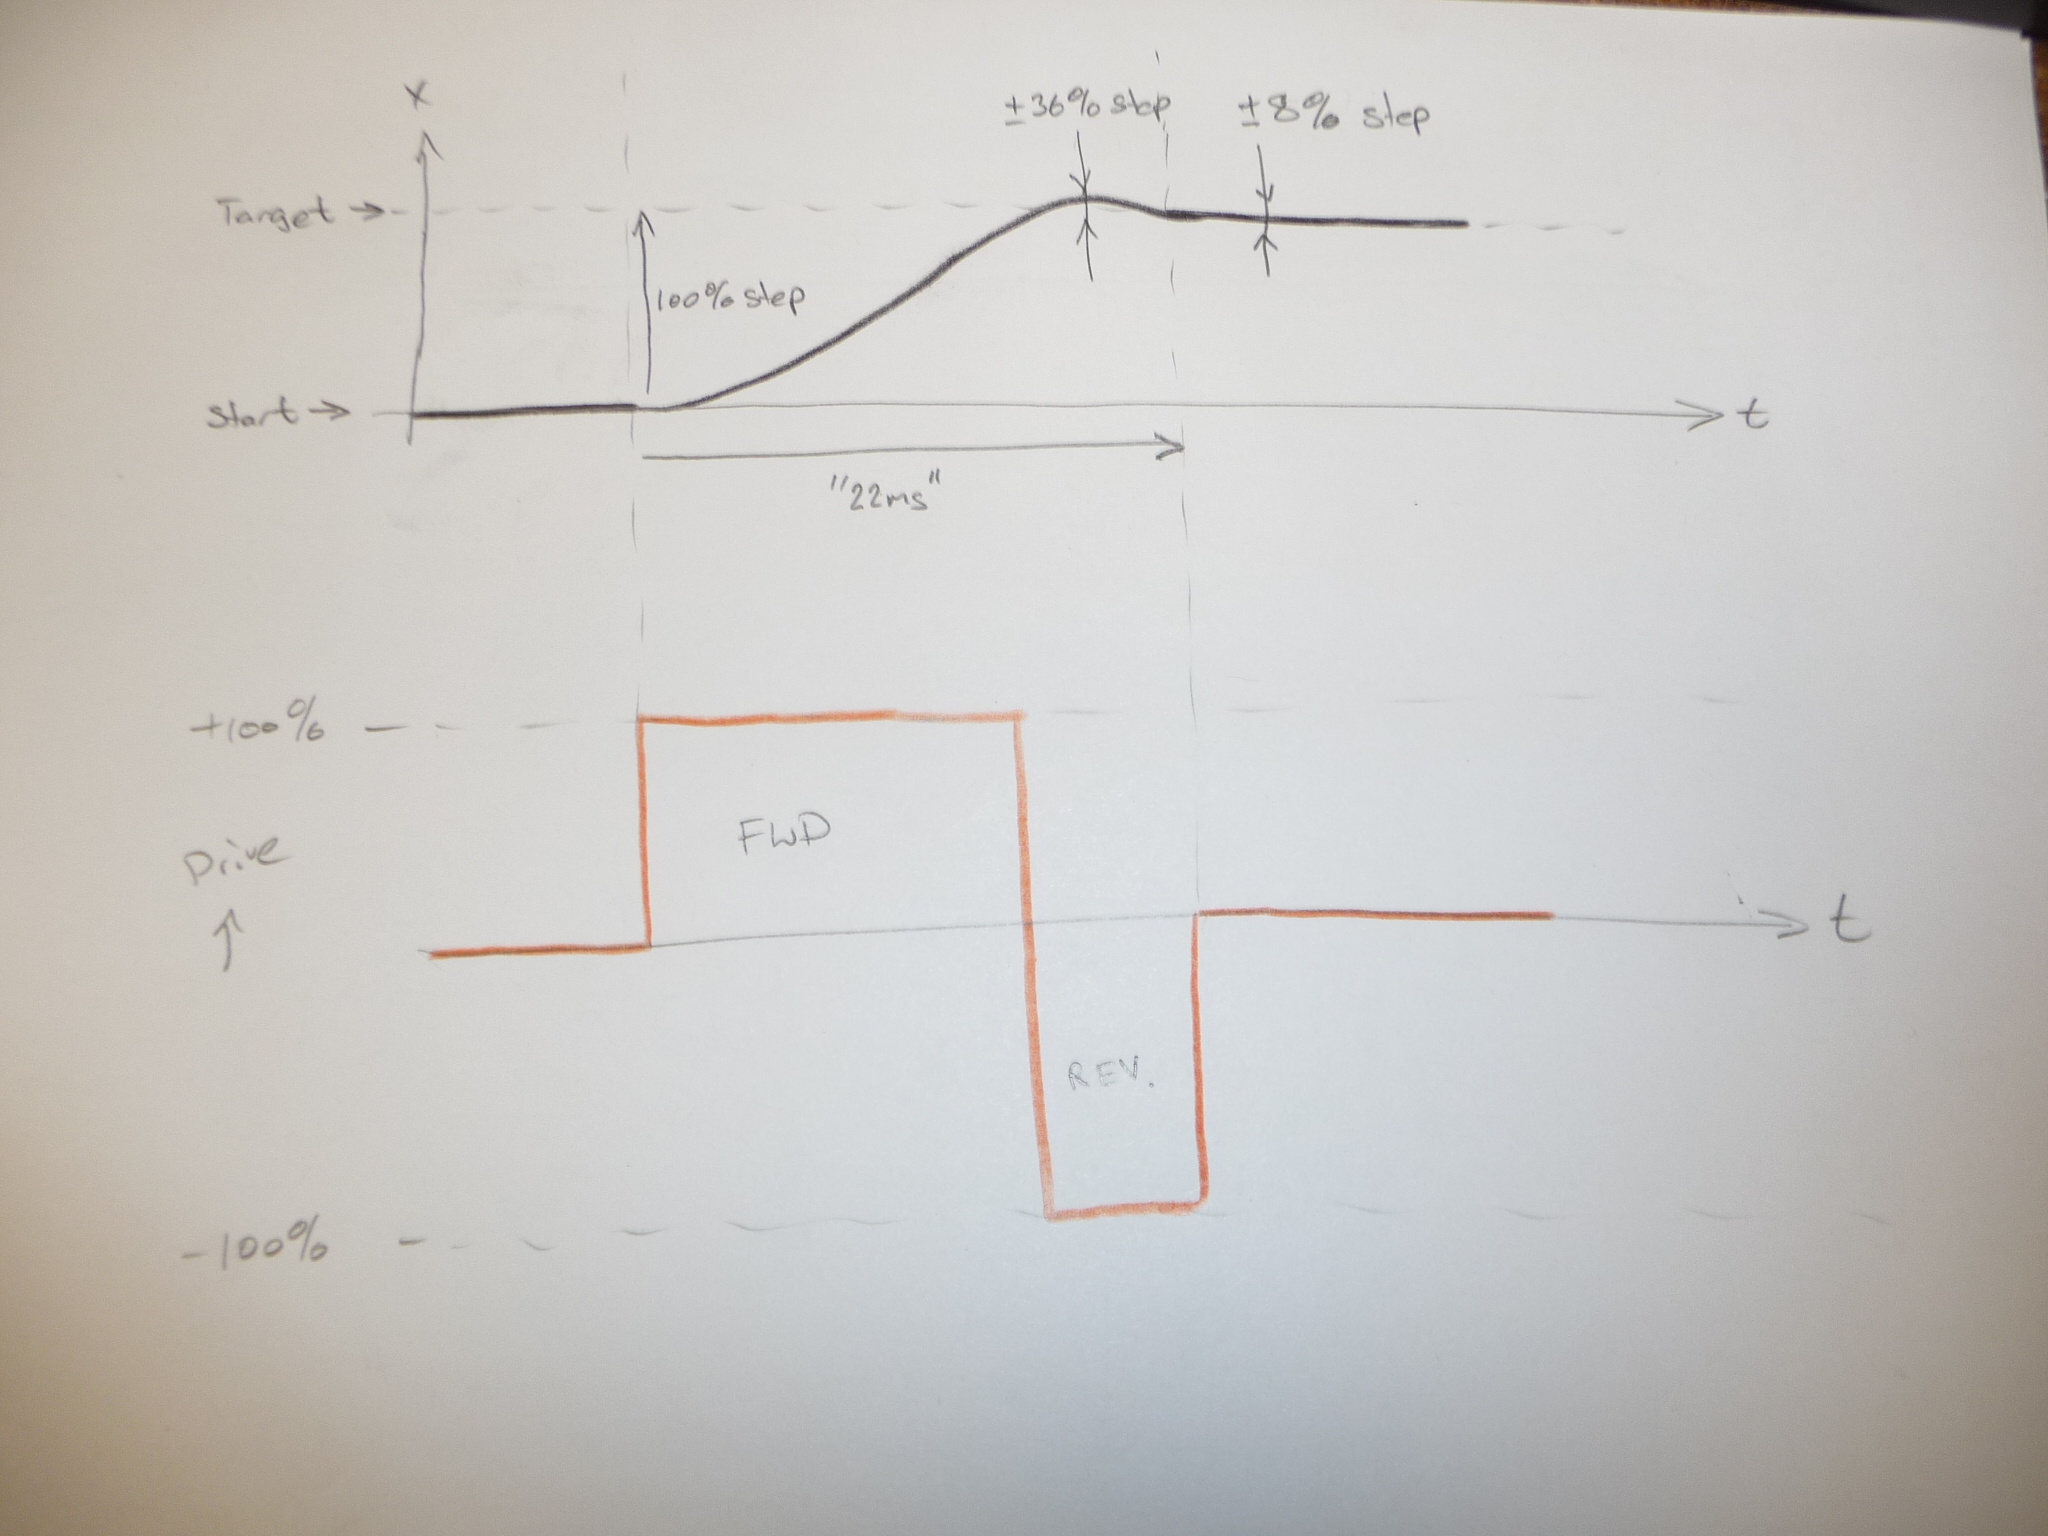 x
±36% step
±8% step
Target →
100% step
Start →
t
"22ms"
+100%
FWD
Drive
↑
t
REV.
-100%